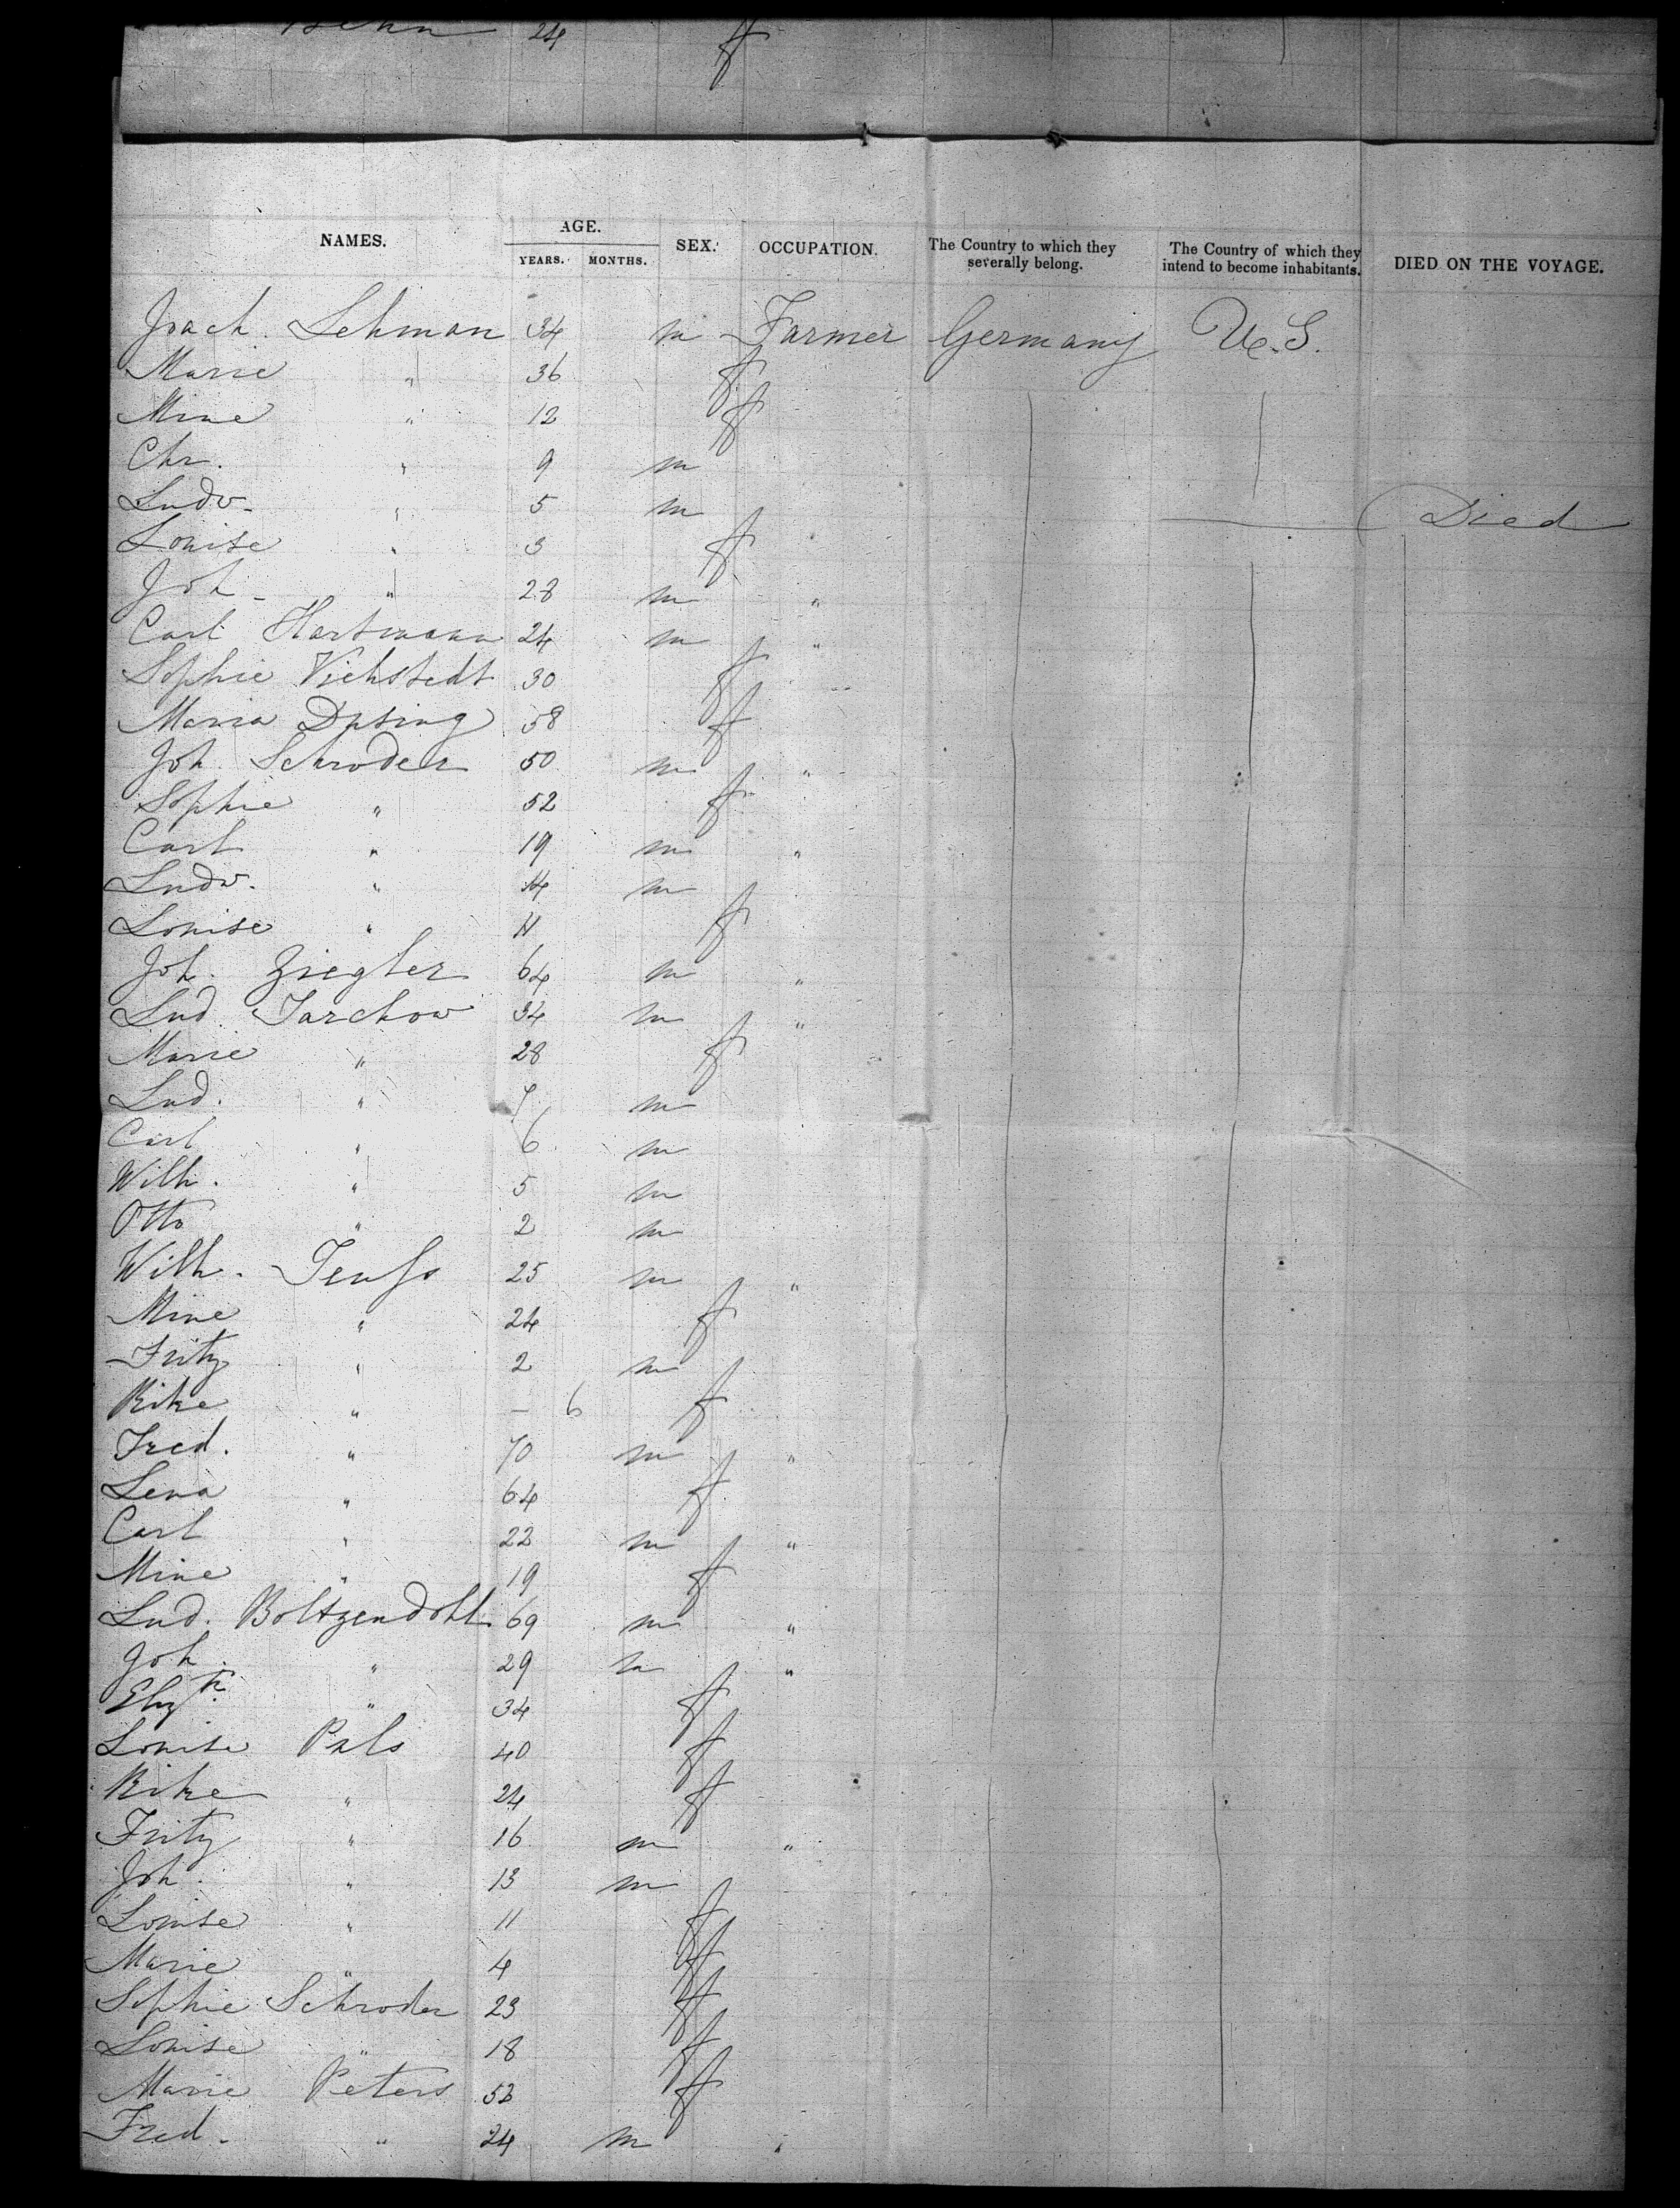 24 f
NAMES. AGE. YEARS. MONTHS. SEX. OCCUPATION. The Country to which they severally belong. The Country of which they intend to become inhabitants. DIED ON THE VOYAGE.
Joach. Lehman 34 m Farmer Germany U.S.
Marie " 36 f
Mine " 12 f
Chr. " 9 m
Ludw. " 5 m Died
Louise " 3 f "
Joh. " 28 m "
Carl Hartmann 24 m "
Sophie Viehstedt 30 f
Maria Düsing 58 f
Joh. Schroder 50 m "
Sophie " 52 f
Carl " 19 m "
Ludw. " 14 m
Louise " 11 f
Joh. Ziegler 64 m "
Lud. Jarchow 34 m "
Marie " 28 f
Lud. " 7 m
Carl " 6 m
Wilh. " 5 m
Otto " 2 m
Wilh. 25 m "
Mine " 24 f
Fritz " 2 m
Rike " – 6 f
Fred. " 70 m "
Lena " 64 f
Carl " 22 m "
Mine " 19 f
Lud. Boltzendohl 69 m "
Joh. " 29 m "
Elizth. " 34 f
Louise Pals 40 f
Rike " 24 f
Fritz " 16 m "
Joh. " 13 m
Louise " 11 f
Marie " 4 f
Sophie Schroder 23 f
Louise " 18 f
Marie Peters 52 f
Fred. " 24 m "